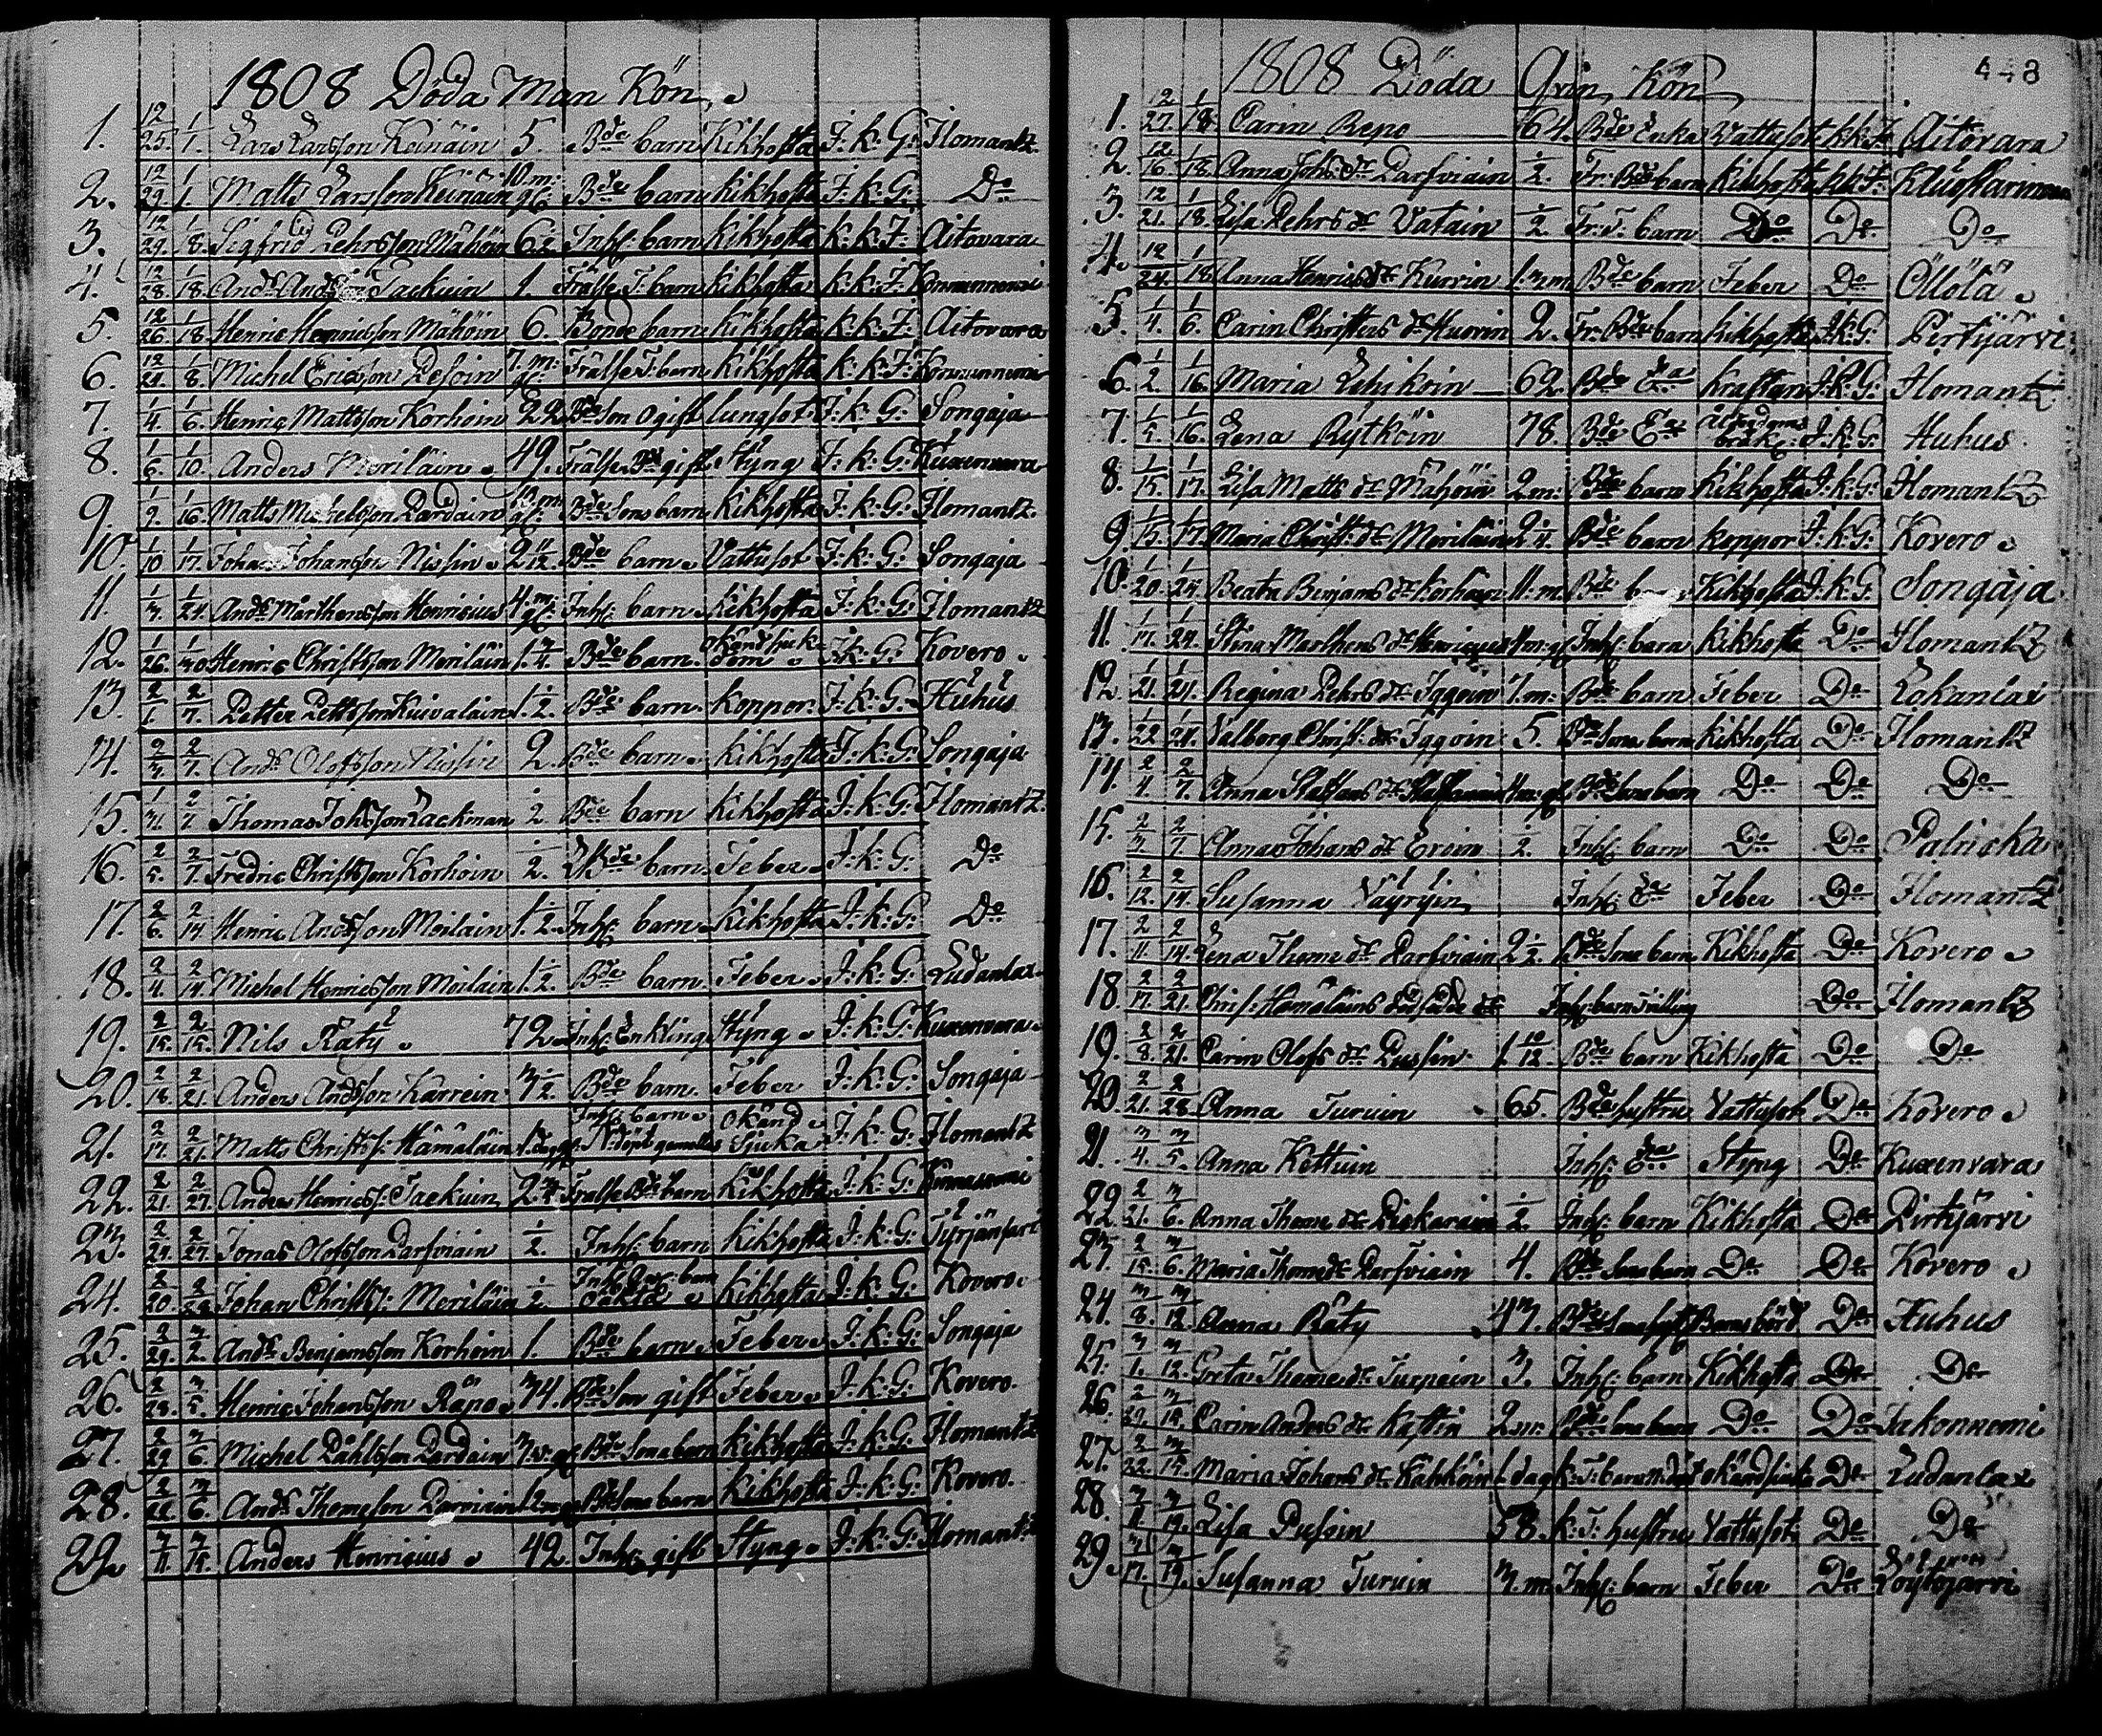 1808 Döda Man Kön
1. 12/25. 1/1. Lars Larsson Keinäin 5. Bde barn Kikhosta I: k: G: Ilomantz
2. 12/29. 1/1. Matts Larsson Keinäin 10. m: gl: Bde barn kikhosta I: k: G: Do
3. 12/29. 1/18. Sigfrid Pehrsson Mähöin 6 1/2 Inhs: barn kikhosta k: k: F: Aitovara
4. 12/28. 1/18. Ands Andsson Tackuin 1. Frälse T: barn kikhosta k: k: F:
5. 12/26. 1/18. Henric Henricsson Mähöin 6. Bonde barn Kikhosta k: k: F: Aitovara
6. 12/21. 1/8. Michel Ericsson Pesoin 7. m: gl: Frälse T: barn Kikhosta k: k: F:
7. 1/4. 1/6. Henric Mattsson Korhoin 22 Bde son ogift lungsot I: k: G: Songaja
8. 1/6. 1/10. Anders Meriläin 49. Frälse Bde gift Styng I: k: G: Kuxenvara
9. 1/9. 1/16. Matts Michelsson Pardain m: gl: Bde sons barn Kikhosta I: k: G: Ilomantz
10. 1/10 1/17. Johan Johansson Nissin 2 11/12. Bde barn Vattusot I: k: G: Songaja
11. 1/3. 1/24. Ands Mårthensson Henricius 4. m: gl: Inhs: barn Kikhosta I: k: G: Ilomantz
12. 1/26. 1/30 Henric Christsson Meriläin 1. 3/4. Bde barn. okänd sjukdom I: k: G: Kovero
13. 2/1. 2/7. Petter Pettsson Kuivalain 1. 1/2. Bde barn. koppor. I: k: G: Huhus
14. 2/3. 2/7. Ands Olofsson Nissin 2. Bde barn kikhosta I: k: G: Songaja
15. 1/31. 2/7. Thomas Johsson Lackman 1/2 Bde barn Kikhosta I: k: G: Ilomantz
16. 2/5. 2/7. Fredric Christsson Korhoin 1/2. Bde barn. Feber I: k: G: Do
17. 2/6. 2/14 Henric Andsson Moilain 1. 1/2. Inhs: barn Kikhosta I: k: G: Do
18. 2/4. 2/14. Michel Henricsson Moilain 1. 1/2. Bde barn Feber I: k: G: Ludanlax
19. 2/15. 2/15. Nils Räty 72 Inhs: Enkling Styng I: k: G: Kuxenvara
20. 2/18. 2/21. Anders Andsson Karrein 3 1/2. Bde barn. Feber I: k: G: Songaja
21. 2/17. 2/21. Matts Christs: Hämäläin Inhs: barn Nödöpt gemellus Okänd Sjuka I: k: G: Ilomantz
22. 2/21. 2/27. Anders Henrics: Tackuin 2 3/4 Frälse Bde barn Kikhosta I: k: G:
23. 2/24. 2/27. Jonas Olofsson Parfviain 1/2. Inhs: barn Kikhosta I: k: G:
24. 2/20. 2/28. Johan Christs: Meriläin 1/2. Inhs: oäkta Kikhosta I: k: G: Kovero
25. 2/29. 3/2. Ands Benjamsson Korhoin 1. Bde barn Feber I: k: G: Songaja
26. 2/28. 3/5. Henric Johansson Räpo 34. Bde son gift Feber I: k: G: Kovero.
27. 2/29 3/6. Michel Påhlsson Pardain Bde Sona barn kikhosta I: k: G: Ilomantz
28. 3/6. Ands Thomsson Parviain Bde sons barn Kikhosta I: k: G: Kovero.
29 3/11. 3/15. Anders Henricius 42. Inhs: gift Styng I: k: G: Ilomantz
1808 Döda Qvin Kön
448
1. 12/27. 1/18 Carin Repo 64. Bde Enka Vattusot kk F Aitovara
2. 12/16. 1/18. Anna Johs: dr Parfviain 1/2. Fr: Bde barn kikhosta kk F:
3. 12/21. 1/18. Lisa Pehrs dr Vatain 1/2 Fr: T: barn Do Do Do
4. 12/24. 1/18. Anna Henrics dr Kurvin Bde barn Feber Do Öllölä
5. 1/4. 1/6. Carin Christers dr Huovin 2. Fr: Bde barn kikhosta I: k: G: Pirttjärvi
6. 1/2. 1/16. Maria Ihikoin 62. Bde Ea I: k: G: Ilomantz
7. 1/5. 1/16. Lena Rytköin 78. Bde Ea Ålderdoms bräck: I: k: G: Huhus
8. 1/15. 1/17. Lisa Matts dr Mähöin 2 m: Bde barn Kikhosta I: k: G: Ilomantz
9. 1/15. 1/17. Maria Christ: dr Meriläin 2 1/4. Bde barn koppor I: k: G: Kovero
10. 1/20. 1/24 Beata Benjams dr Korhoin 11. m. Bde b Kikhosta I: k: G Songaja
11. 1/17. 1/24. Stina Marthens dr Henricius Inhs: barn kikhosta Do Ilomantz
12. 1/21. 1/24. Regina Pehrs dr Iggoin 7. m: Bde barn Feber Do Lokanlax
13. 1/22 1/24. Valborg Christ: dr Iggoin 5. Bde sona barn kikhosta Do Ilomantz
14. 2/4. 2/7. Anna Staffans dr Bde sona barn Do Do Do
15. 2/3. 2/7 Anna Johans dr Eroin 1/2. Inhs: barn Do Do Patricka
16. 2/12. 2/14. Susanna Väyryin Inhs: Ea Feber Do Ilomantz
17. 2/11. 2/14. Lena Thoms dr Parfviain 2 1/2. Bde sona barn Kikhosta Do Kovero
18. 2/17. 2/21. Chris: Hämäläins dödfödde dr Inhs: barn Tvilling Do Ilomantz
19. 2/8. 2/21. Carin Olofs dr Pussin 1. 10/12. Bde barn Kikhosta Do Do
20. 2/21. 2/28. Anna Turuin 65. Bde hustru Vattusot Do Kovero
21. 3/4. 3/5. Anna Kettuin Inhs: Ea Styng Do Kuxenvara
22. 2/21. 3/6. Anna Thoms dr Piskarain 1/2. Inhs: barn Kikhosta Do Pirttjärvi
23. 2/15. 3/6. Maria Thoms dr Parfviain 4. Bde sona barn Do Do Kovero
24. 3/8. 3/12 Anna Räty 43. Barnsbörd Do Huhus
25. 3/1. 3/12. Greta Thoms dr Turpein 3. Inhs: barn Kikhosta Do Do
26. 2/29. 3/15. Carin Anders dr Kostin 2 m. Bde sona barn Do Do
27. 2/22. 3/15. Maria Johans dr Kähköin 1. dag k: T: barn okänd sjuka Do Ludanlax
28. 3/11. 3/19. Lisa Pussin 58. k: T: hustru Vattusot Do Do
29. 3/17. 3/19. Susanna Turuin 3. m. Inhs: barn Feber Do Löytöjärvi